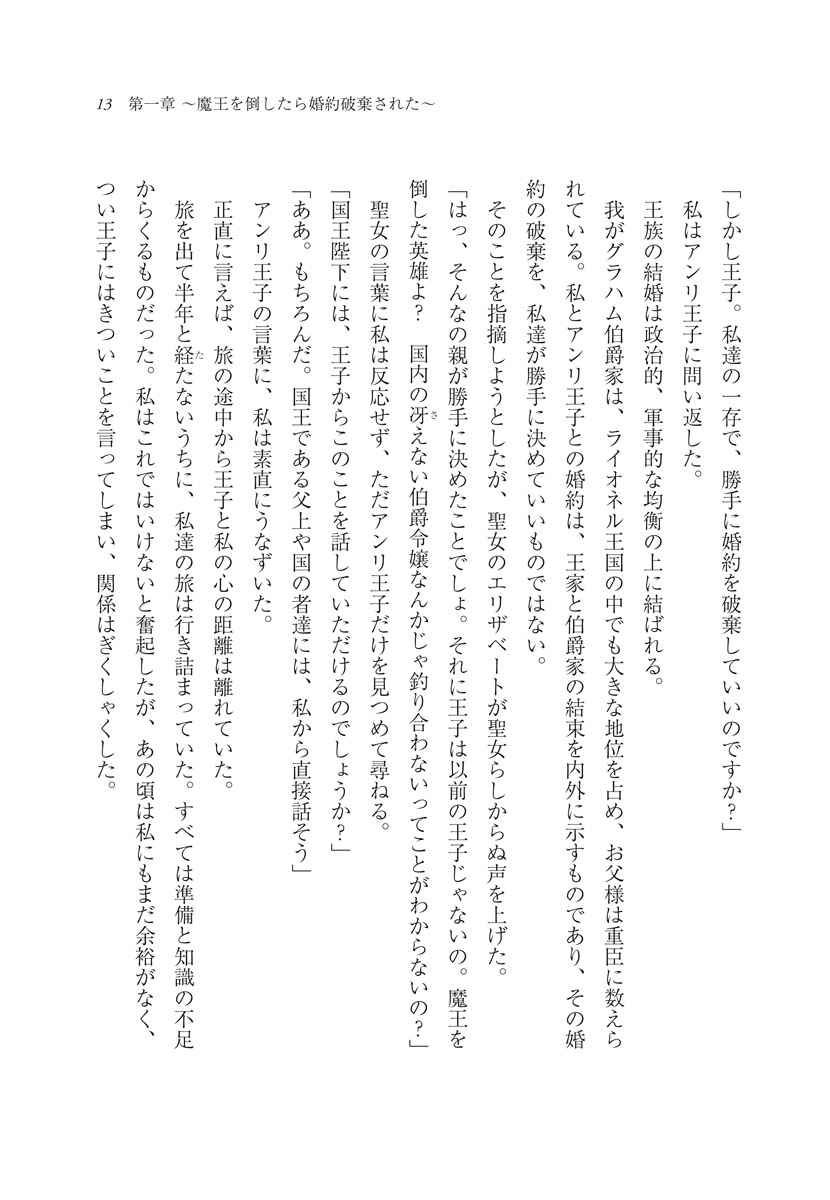 13　第一章 〜魔王を倒したら婚約破棄された〜
「しかし王子。私達の一存で、勝手に婚約を破棄していいのですか？」
私はアンリ王子に問い返した。
王族の結婚は政治的、軍事的な均衡の上に結ばれる。
我がグラハム伯爵家は、ライオネル王国の中でも大きな地位を占め、お父様は重臣に数えら
れている。私とアンリ王子との婚約は、王家と伯爵家の結束を内外に示すものであり、その婚
約の破棄を、私達が勝手に決めていいものではない。
そのことを指摘しようとしたが、聖女のエリザベートが聖女らしからぬ声を上げた。
「はっ、そんなの親が勝手に決めたことでしょ。それに王子は以前の王子じゃないの。魔王を
倒した英雄よ？　国内の冴さえない伯爵令嬢なんかじゃ釣り合わないってことがわからないの？」
聖女の言葉に私は反応せず、ただアンリ王子だけを見つめて尋ねる。
「国王陛下には、王子からこのことを話していただけるのでしょうか？」
「ああ。もちろんだ。国王である父上や国の者達には、私から直接話そう」
アンリ王子の言葉に、私は素直にうなずいた。
正直に言えば、旅の途中から王子と私の心の距離は離れていた。
旅を出て半年と経たたないうちに、私達の旅は行き詰まっていた。すべては準備と知識の不足
からくるものだった。私はこれではいけないと奮起したが、あの頃は私にもまだ余裕がなく、
つい王子にはきついことを言ってしまい、関係はぎくしゃくした。